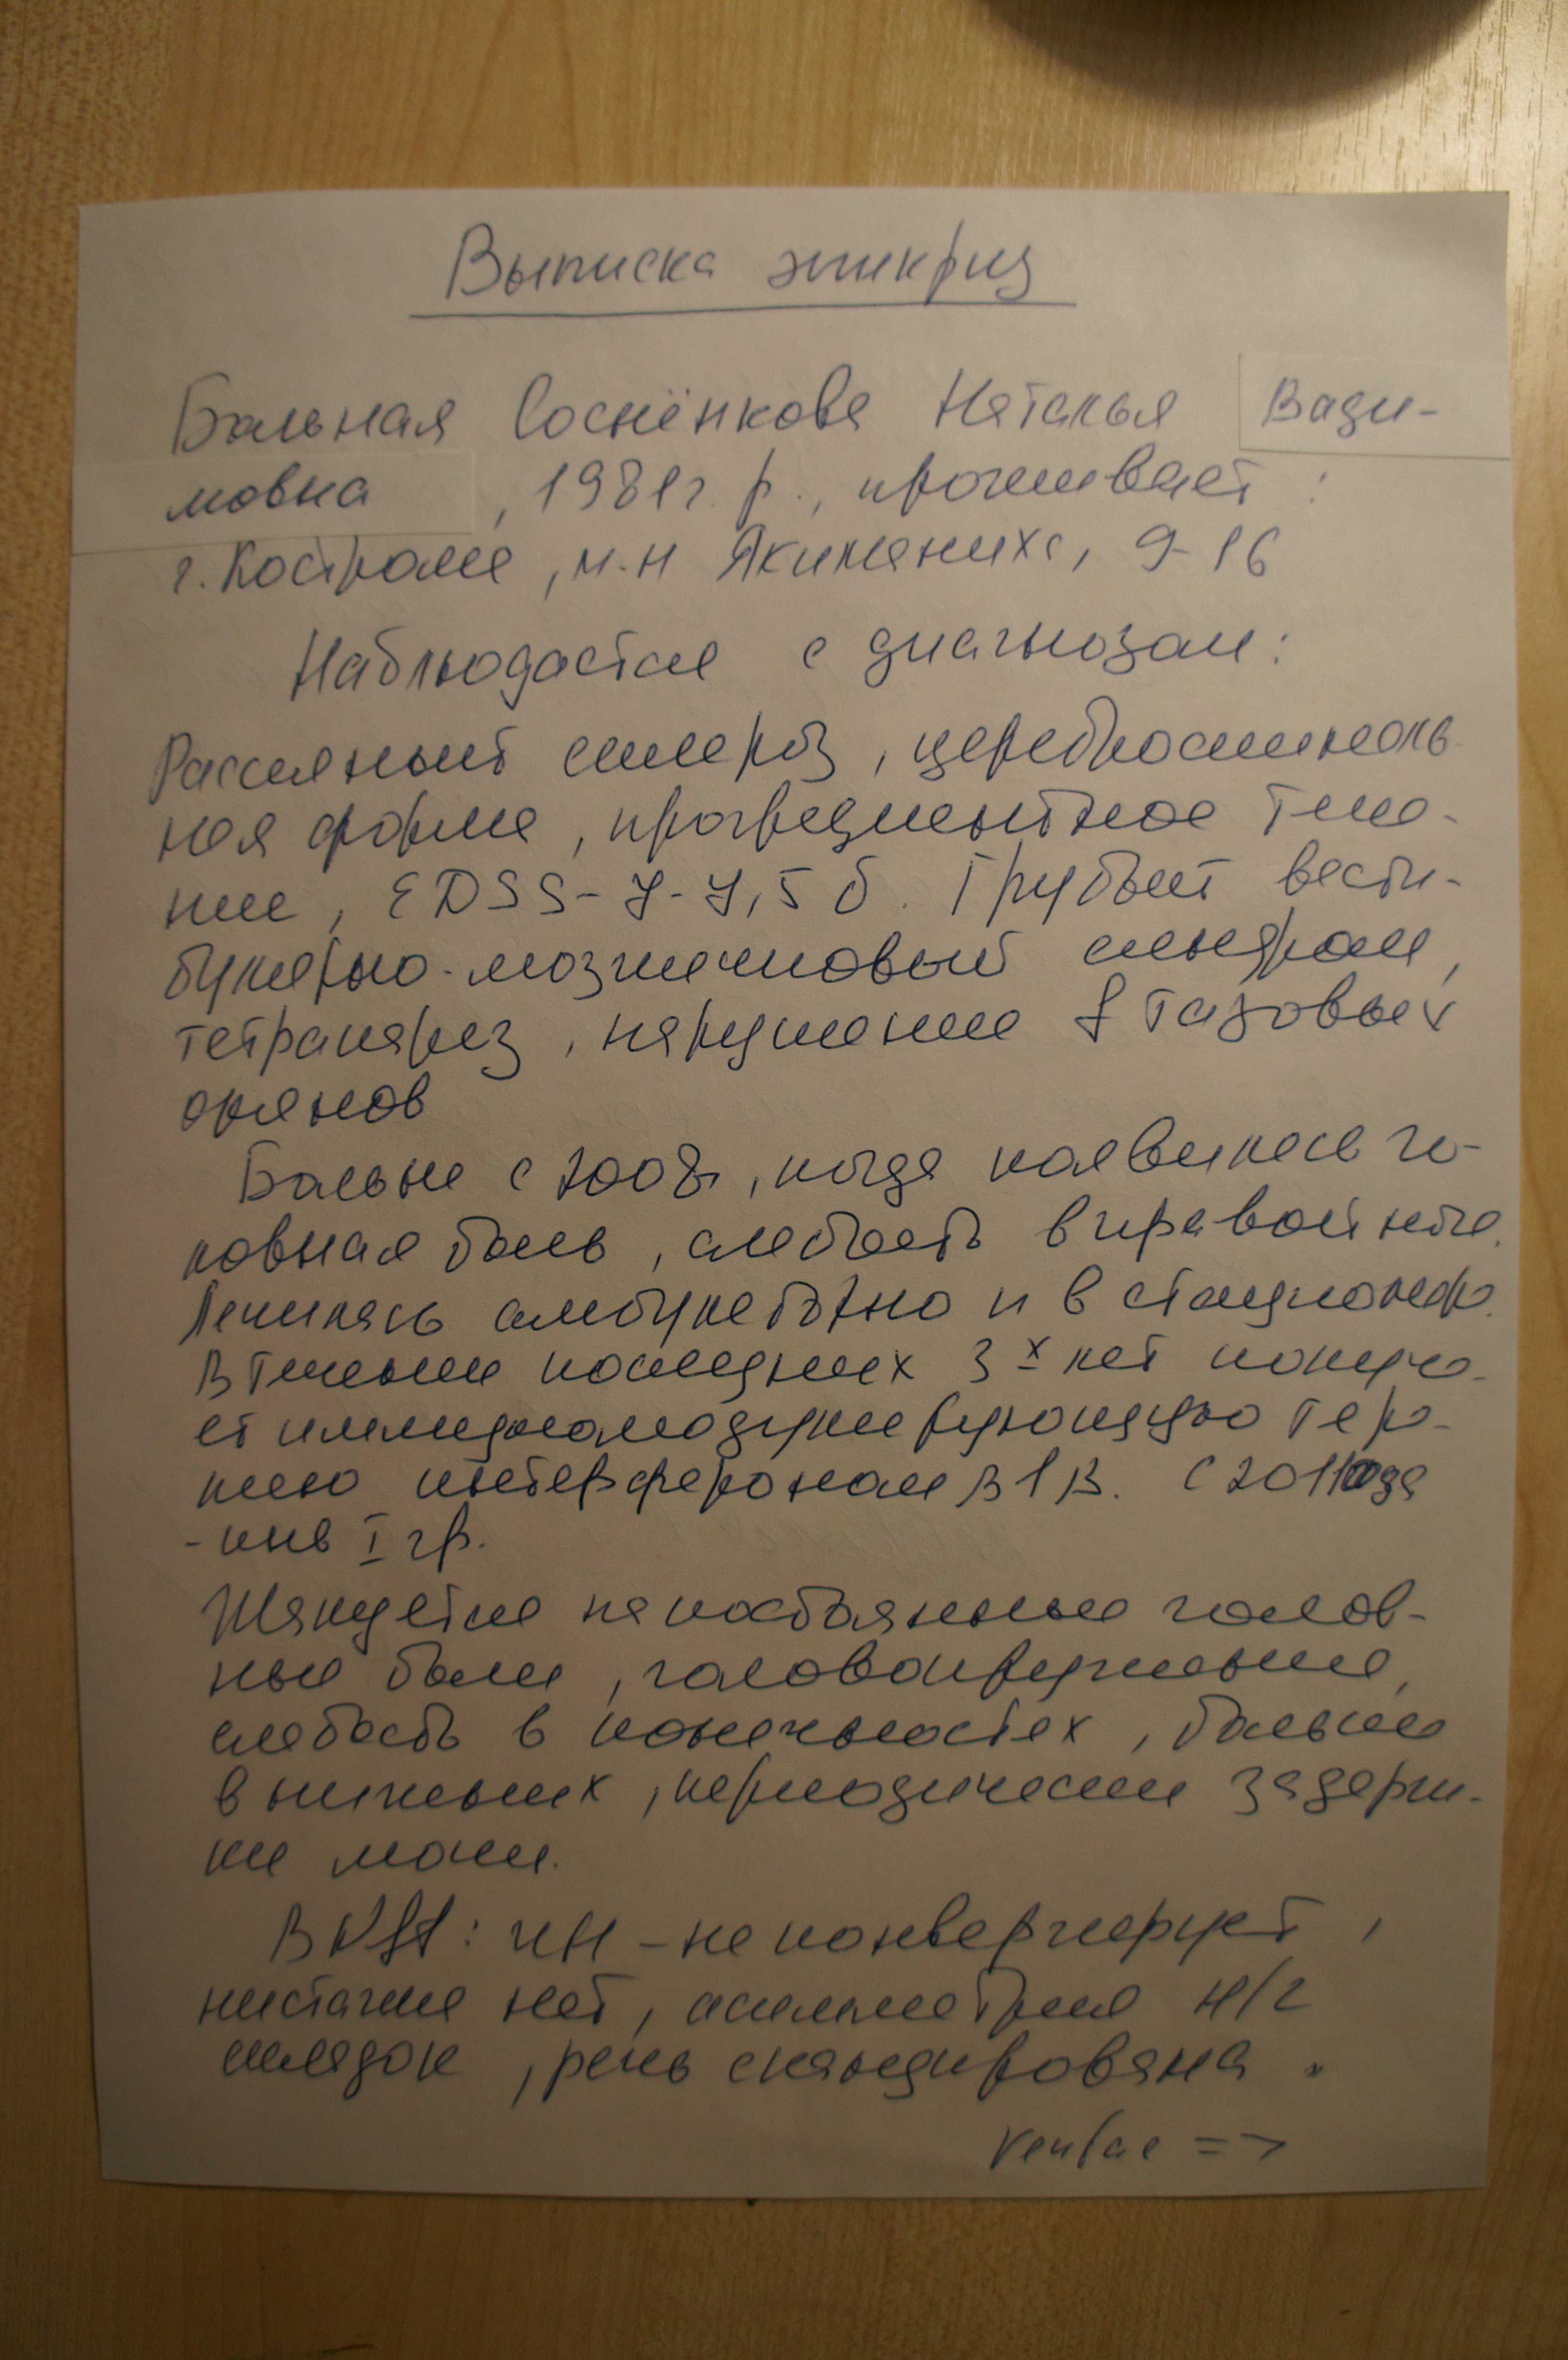 Выписка эпикриз
Больная Соснёнкова Наталья Вади-
мовна, 1981г.р., проживает:
г. Кострома, м-н Якиманиха, 9-16
Наблюдается с диагнозом:
Рассеянный склероз, цереброспиналь-
ная форма, прогредиентное тече-
ние, EDSS-7-7,5 б. Грубый вести-
булярно-мозжечковый синдром,
тетрапарез, нарушение f тазовых
органов
Больна с 2008г, когда появилась го-
ловная боль, слабость в правой ноге.
Лечилась амбулаторно и в стационаре.
В течении последних 3х лет получа-
ет иммуномодулирующую тера-
пию интерфероном β1В. С 2011года
-инв I гр.
Жалуется на постоянные голов-
ные боли, головокружение,
слабость в конечностях, больше
в нижних, периодически задерж-
ки мочи.
В : чмн - не конвергирует,
нистагма нет, асимметрия н/г
складок, речь скандирована.
=>